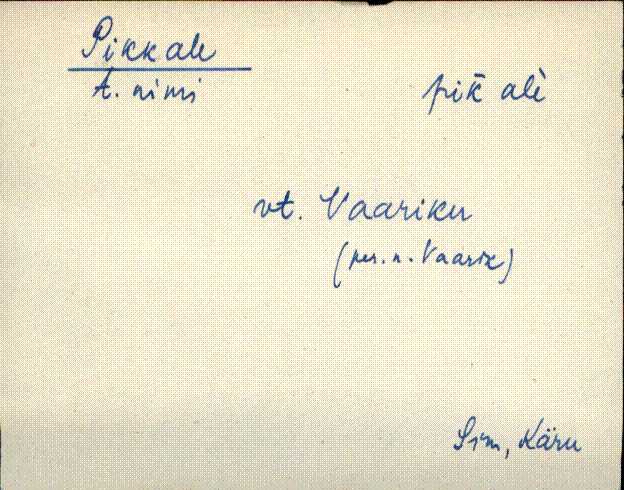 Pikkale
t. nimi
pik̄ alè
vt. Vaariku
(per. n. Vaarik)
Sim, Käru